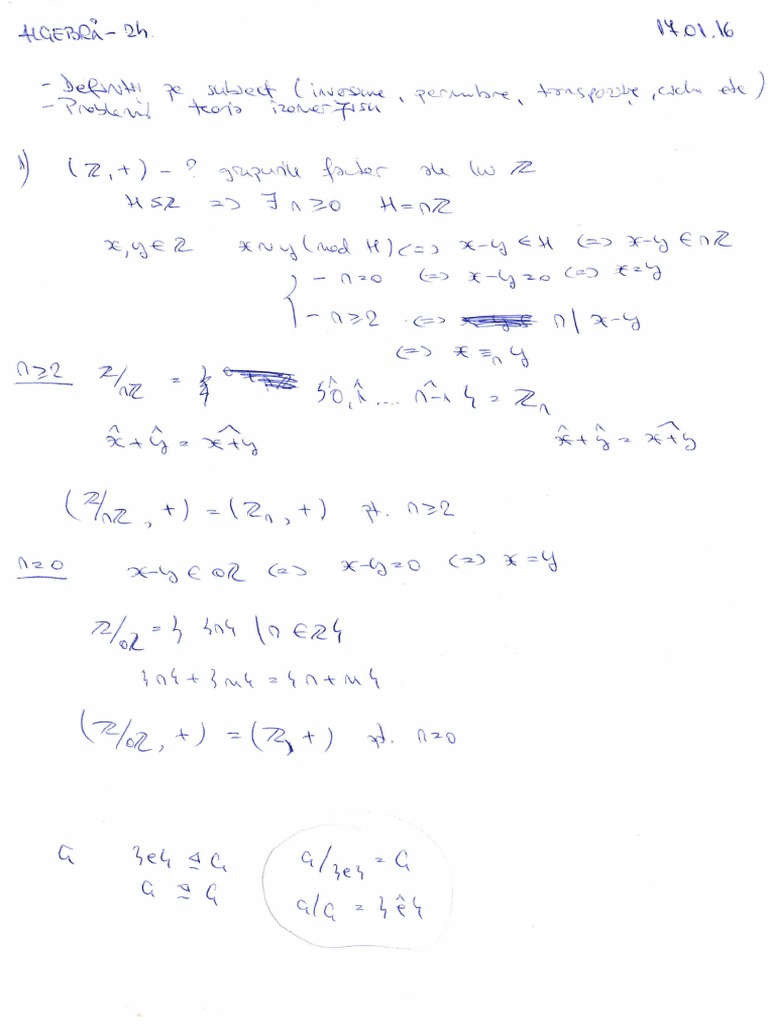 ALGEBRĂ - 2h. 17.01.16
- Definitii pe subiect (inversiune, permutare, transpoziție, ciclu etc)
- Problemă teoria izomorfism
1) (ℤ,+) - ? grupurile factor ale lui ℤ
H ≤ ℤ => ∃ n ≥ 0 H = nℤ
x,y ∈ ℤ x ~ y (mod H) <=> x-y ∈ H <=> x-y ∈ nℤ
- n=0 <=> x-y=0 <=> x=y
- n≥2 <=> n | x-y
<=> x ≡ₙ y
n≥2 ℤ/nℤ = { 0̂, 1̂ .... n-1̂ } = ℤₙ
x̂ + ŷ = x+ŷ x̂ + ŷ = x+ŷ
(ℤ/nℤ, +) = (ℤₙ, +) pt. n≥2
n=0 x-y ∈ 0ℤ <=> x-y=0 <=> x=y
ℤ/0ℤ = { {n} | n ∈ ℤ }
{n} + {m} = {n+m}
(ℤ/0ℤ, +) = (ℤ, +) pt. n=0
G {e} ⊴ G G/{e} = G
G ⊴ G G/G = {ê}